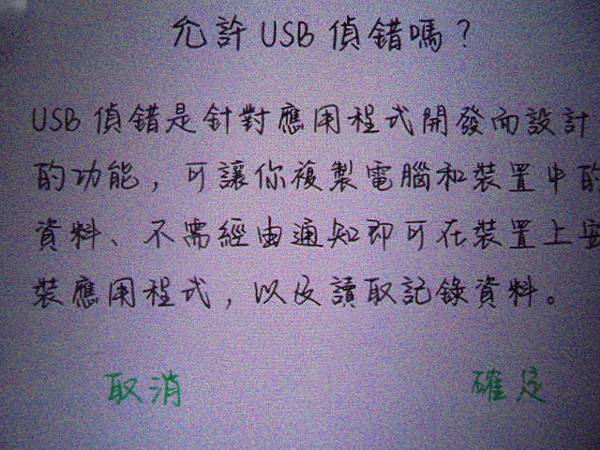 允許 USB 偵錯嗎？
USB 偵錯是針對應用程式開發而設計
的功能，可讓你複製電腦和裝置中的
資料、不需經由通知即可在裝置上安
裝應用程式，以及讀取記錄資料。
取消 確定